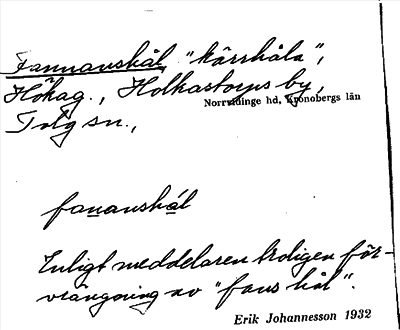 Fannanshål "kärrhåla",
Hökag., Holkastorps by,
Norrvidinge hd, Kronobergs län
Tolg sn.,
fananshål
Enligt meddelaren troligen för-
vrängning av "fans hål".
Erik Johannesson 1932